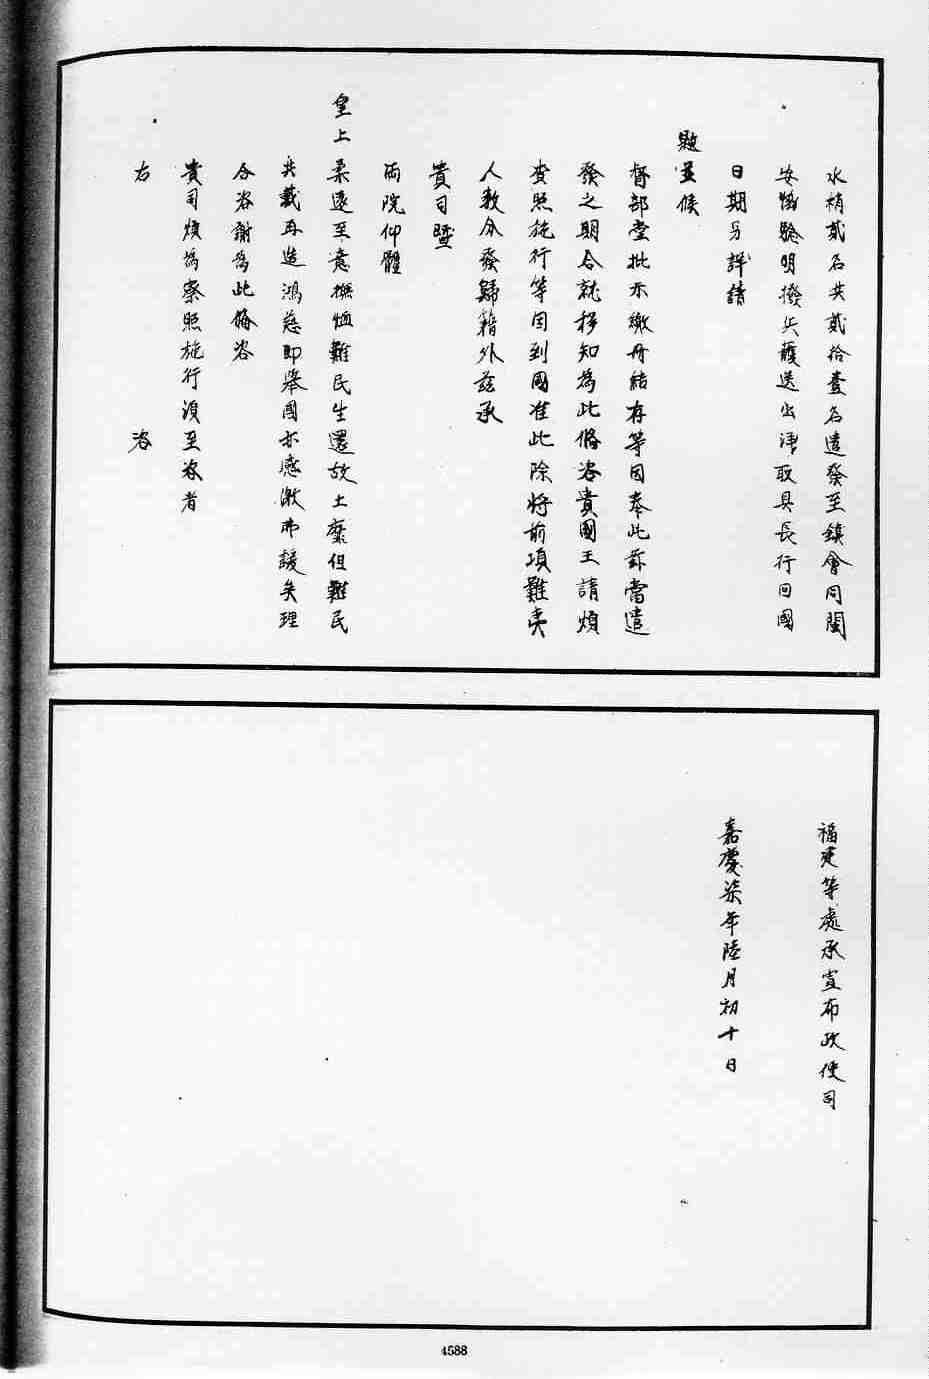 水梢貳名共貳拾壹名遣發至鎮會同閩
安協驗明撥兵護送出津取具長行回國
日期另詳請
題並候
督部堂批示繳冊結存等因奉此茲當遣
發之期合就移知為此備咨貴國王請煩
查照施行等因到國准此除將前項難夷
人數分發歸籍外茲承
貴司暨
兩院仰體
皇上柔遠至意撫恤難民生還故土靡但難民
共戴再造鴻慈即舉國亦感激弗諼矣理
合咨謝為此備咨
貴司煩為察照施行須至咨者
右咨
福建等處承宣布政使司
嘉慶柒年陸月初十日
4588